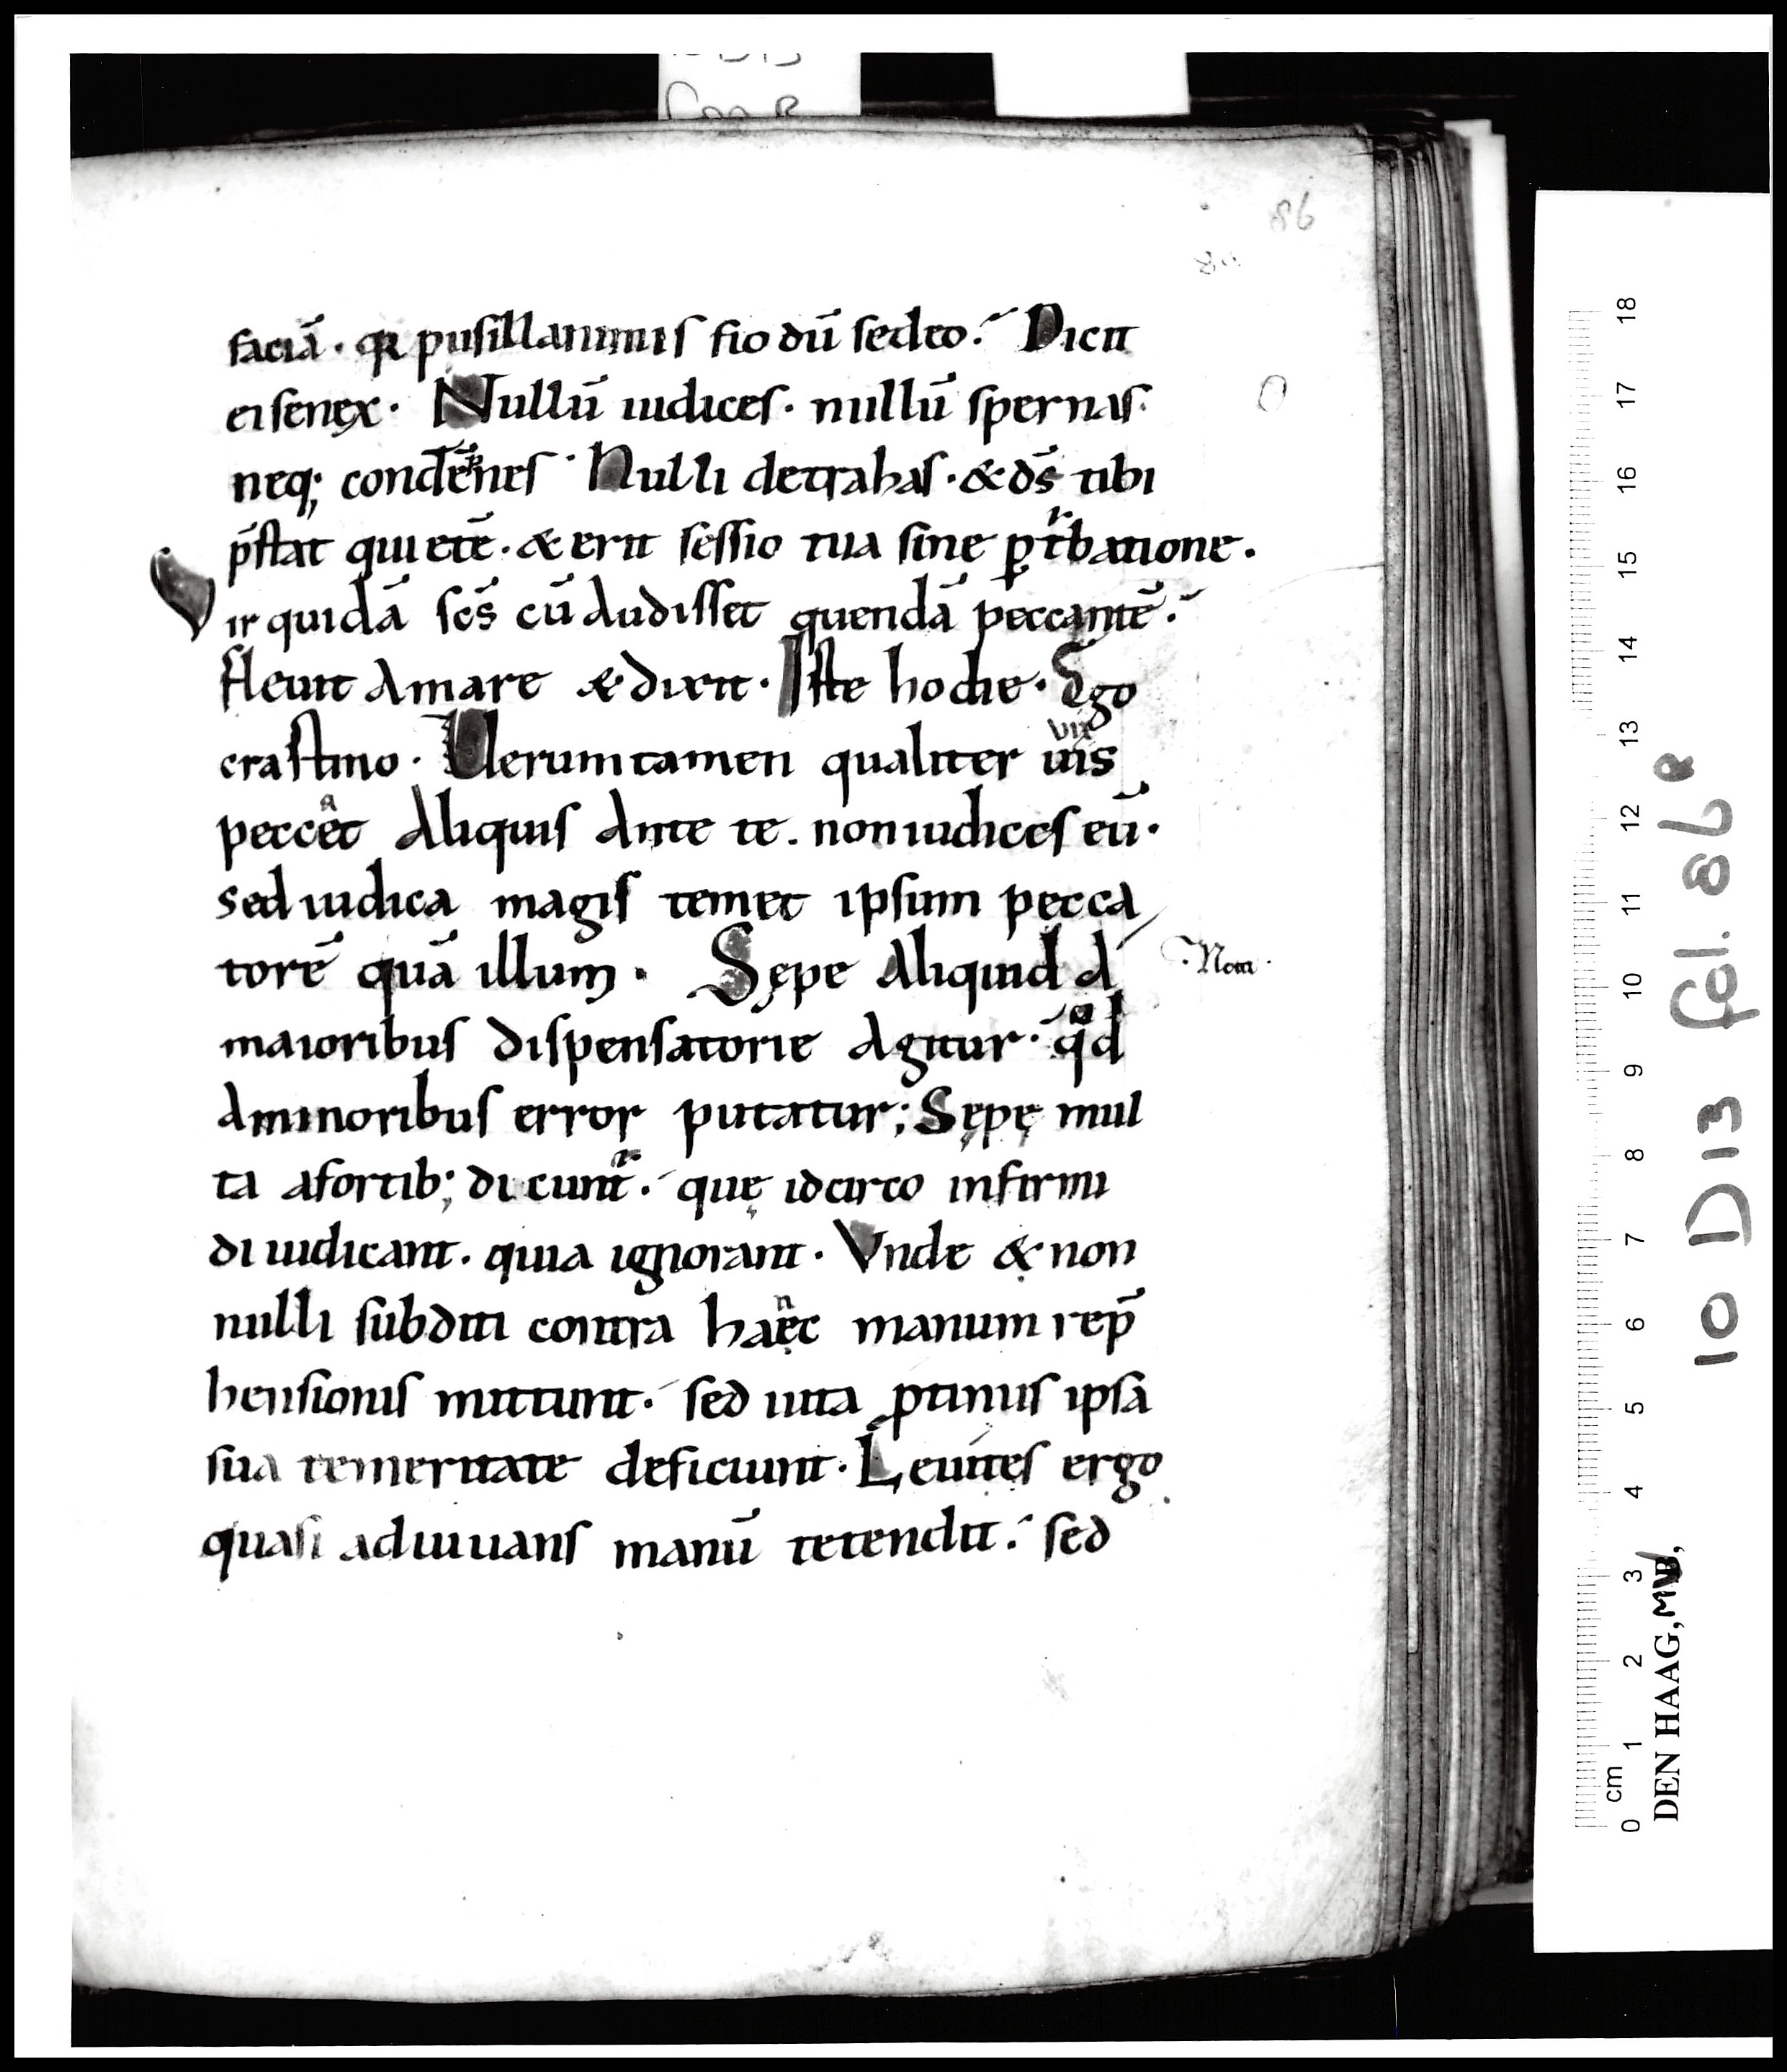 86
faciā · qꝛ pusillanimis fio dū sedeo · Dicit
ei senex · Nullū iudices · nullū spernas ·
neq; condēnes · Nulli detrahas · & ds̄ tibi
p̄stat quietē · & erit sessio tua sine ꝑtͬbatione ·
Vir quidā scs̄ cū audisset quendā peccantē ·
fleuit amare & dixit · Iste hodie · Ego
crastino · Uerumtamen qualiter uis
peccet aliquis ante te · non iudices eū ·
sed iudica magis temet ipsum pecca
torē quā illum · Sępe aliquid a
·Nota·
maioribus dispensatorie agitur · qͣd
aminoribus error putatur; Sępę mul
ta afortib; dicunt᷑ · quę idcirco infirmi
diiudicant · quia ignorant · Vnde & non
nulli subditi contra haec manum rep̄
hensionis mittunt · sed iuita ꝓtinus ipsā
sua temeritate deficiunt · Leuites ergo
quasi adiuuans manū tetendit · sed
10 D 13 fol. 86 R
DEN HAAG, MW,
0 cm 1 2 3 4 5 6 7 8 9 10 11 12 13 14 15 16 17 18